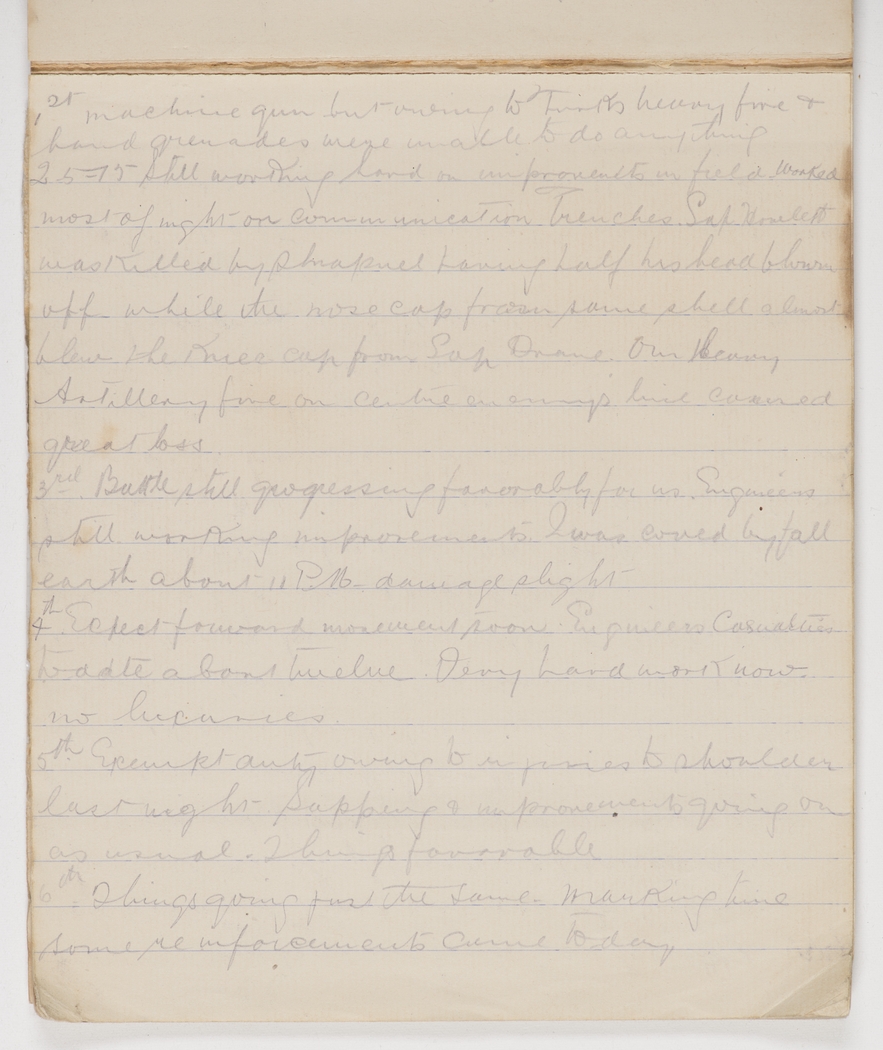 1st machine gun but owing to Turks heavy fire &
hand grenades were unable to do anything
2-5-15 Still working hard on improvements in field. Worked
most of night on communication Trenches. Sap. Howlett
was Killed by Shrapnel having half his head blown
off while the nose cap from same shell almost
blew the Knee cap from Sap Drane. Our Heavy
Artillery fire on centre enemy's line caused
great loss.
3rd. Battle still progressing favorably for us. Engineers
still working improvements. I was covered by fall
earth about 11 P.M. damage slight
4th. Expect forward movement soon. Engineers Casualties
to date about twelve. Very hard work now.
no luxuries.
5th Exempt duty owing to injuries to shoulder
last night. Sapping & improvements going on
as usual. Things favorable
6th. Things going just the same. Marking time
some reinforcements came to day